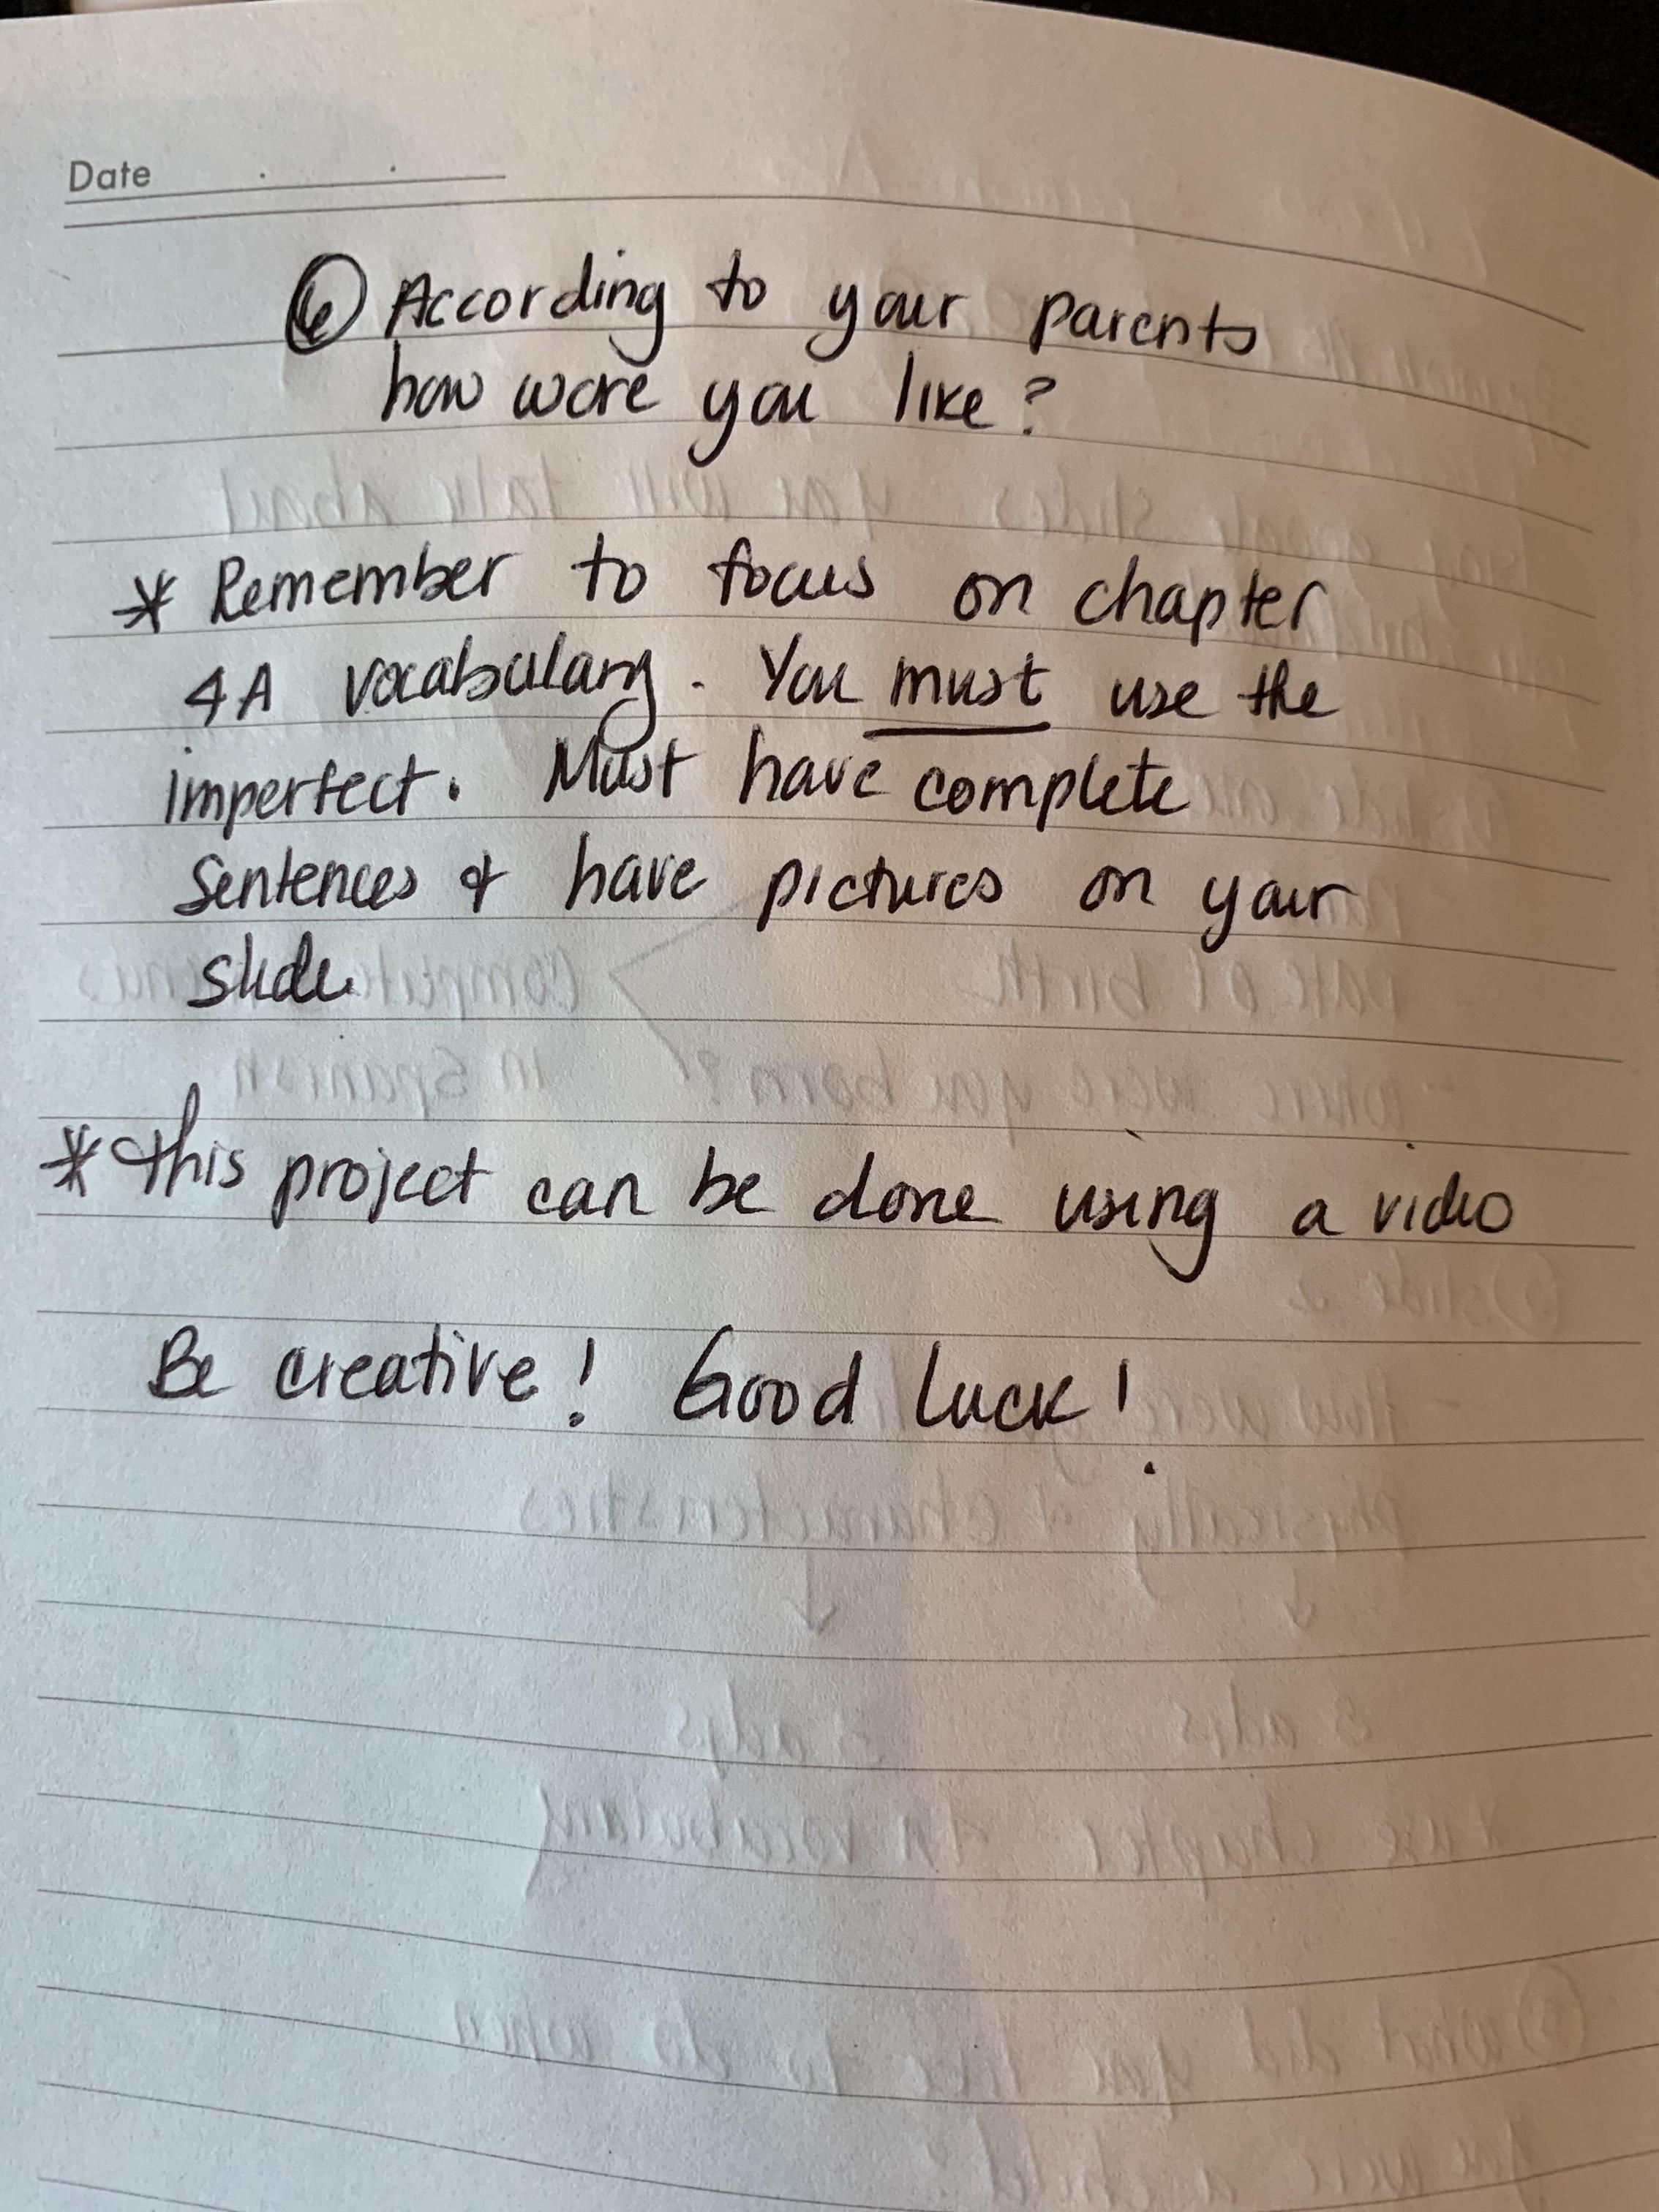 Date
⑥ According to your parents
how were you like?
* Remember to focus on chapter
4A vocabulary. You must use the
imperfect. Must have complete
sentences & have pictures on your
slide.
* this project can be done using a video
Be creative! Good luck!